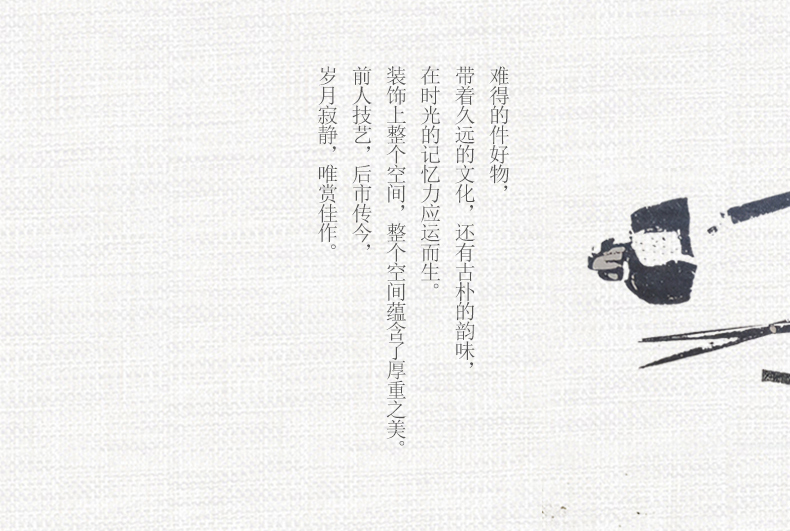 难得的件好物，
带着久远的文化，还有古朴的韵味，
在时光的记忆力应运而生。
装饰上整个空间，整个空间蕴含了厚重之美。
前人技艺，后市传今，
岁月寂静，唯赏佳作。